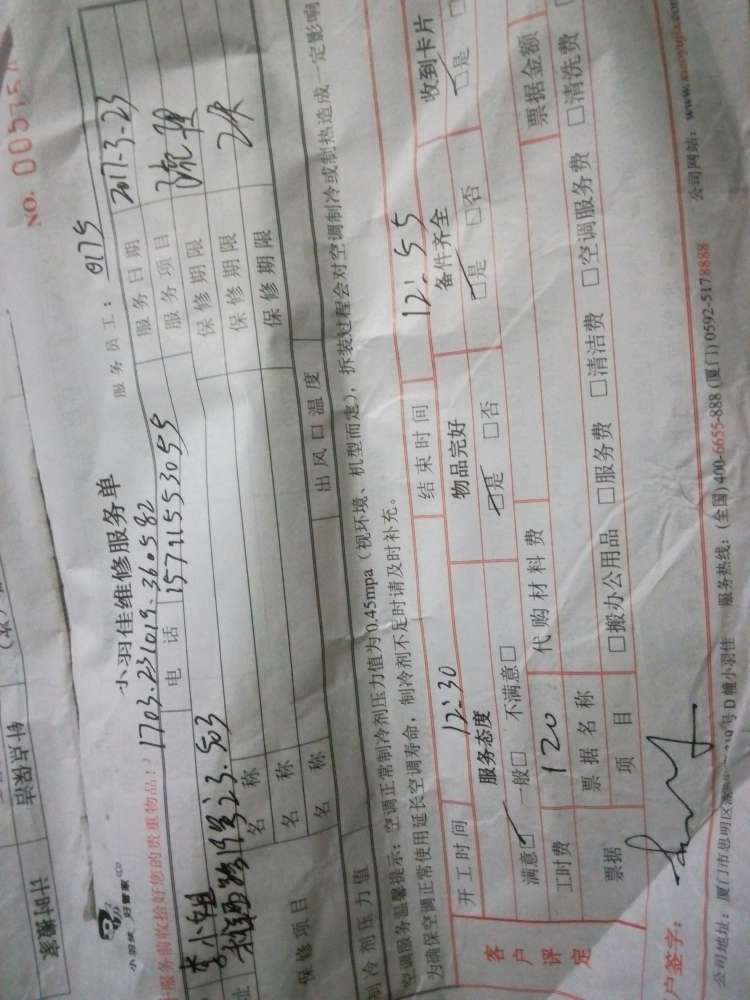 NO. 00
小羽佳 好管家
小羽佳维修服务单
服务员工: 0175
服务前收拾好您的贵重物品!
1703.231019.360582
服务日期 2017-3-23
李小姐
电话 15711553055
服务项目
址
23.503
保修期限
名称
保修期限 2天
保修项目
名称
保修期限
名称
制冷剂压力值
出风口温度
空调服务温馨提示: 空调正常制冷剂压力值为0.45mpa (视环境、机型而定), 拆装过程会对空调制冷或制热造成一定影响
为确保空调正常使用延长空调寿命, 制冷剂不足时请及时补充。
开工时间 12:30 结束时间 12:55
客户评定
服务态度 物品完好 备件齐全 收到卡片
满意□ 一般□ 不满意□ □是 □否 □是 □否 □是 □
工时费 120 代购材料费 票据金额
票据 票据名称
项目 □搬办公用品 □服务费 □清洁费 □空调服务费 □清洗费
户签字:
公司地址: 厦门市思明区 号D幢小羽佳 服务热线: (全国)400-6655-888 (厦门)0592-5178888 公司网站: www.xiaoyujia.com
计时频率